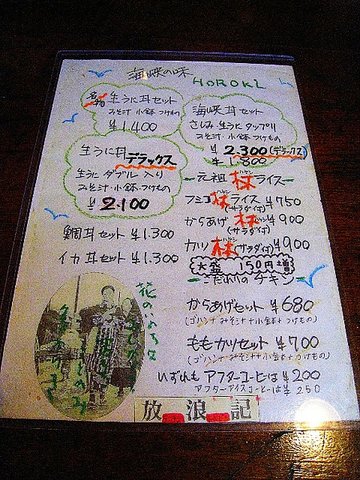 海峡の味
HOROKI
名物 生うに丼セット
みそ汁 小鉢 つけもの
¥1400
海峡丼セット
さしみ 生うに タップリ
みそ汁 小鉢 つけもの
¥2.300(デラックス)
¥1.800
生うに丼
デラックス
生うに ダブル 入り
みそ汁 小鉢 つけもの
¥2.100
元祖 林ライス
フェゴ林ライス ¥950
(サラダ付)
からあげ林 ¥900
(サラダ付)
カツ林(サラダ付) ¥900
大盛 150円増
鯛丼セット ¥1.300
イカ丼セット ¥1.300
こだわりのチキン
からあげセット ¥680
(ゴハン+みそ汁+小鉢+つけもの)
ももカツセット ¥700
(ゴハン+みそ汁+小鉢+つけもの)
いずれも アフターコーヒーは ¥200
アフターアイスコーヒーは ¥250
花のいのちは
放浪記